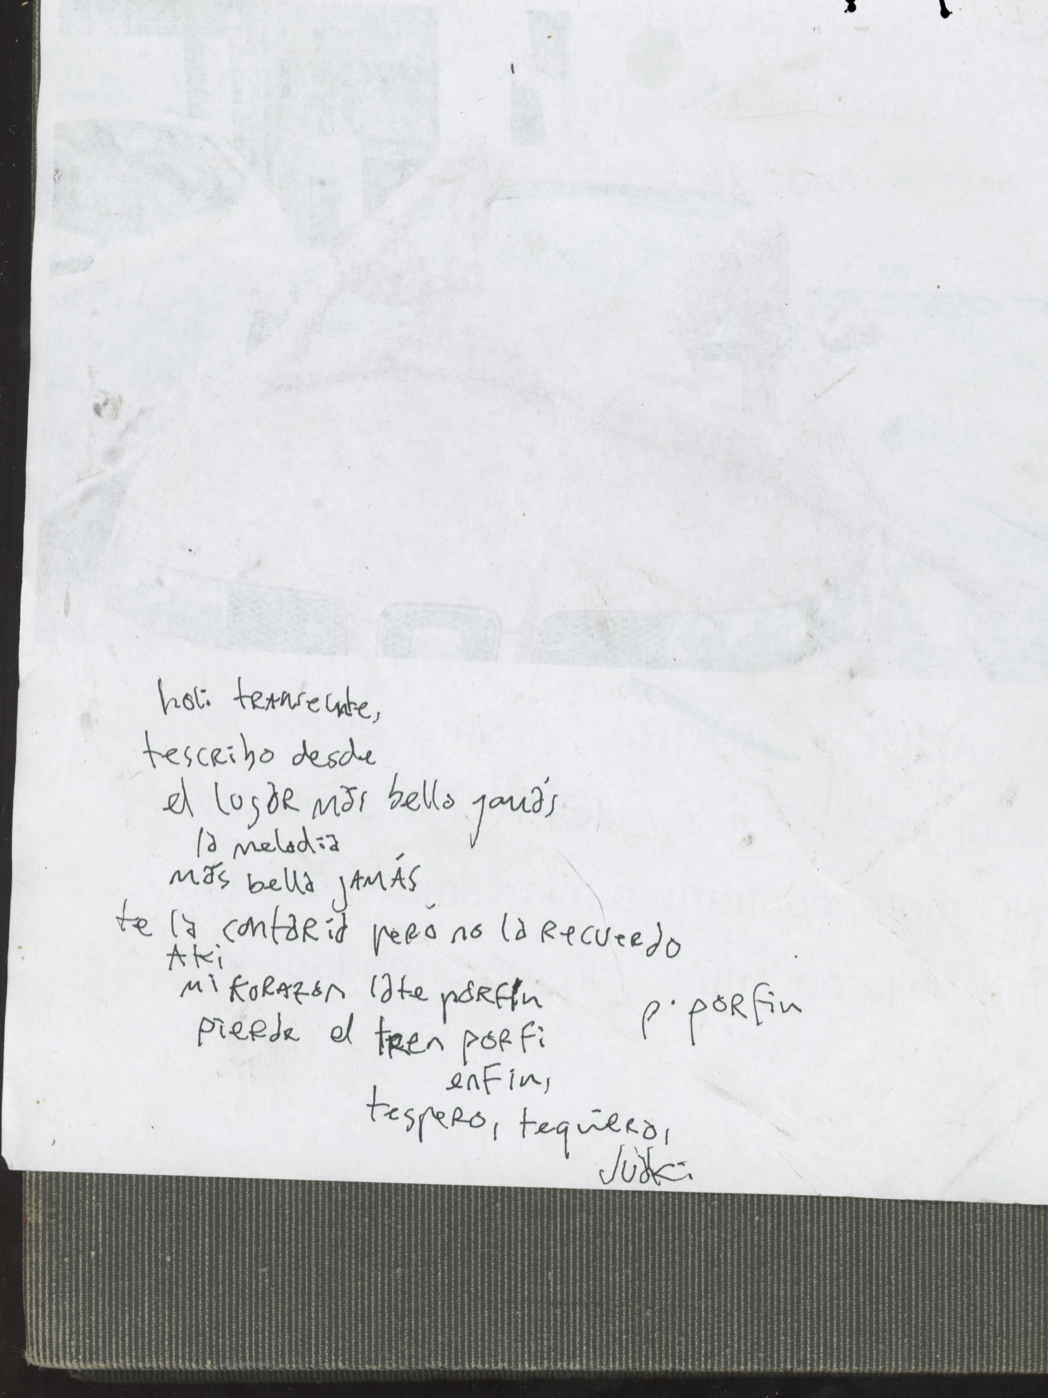 holi transeunte,
tescribo desde
el lugar más bello jamás
la melodia
más bella JAMÁS
te la contaria pero no la recuerdo
Aki
mi korazon late porfin
p. porfin
pierde el tren porfi
enfin,
tespero, tequiero,